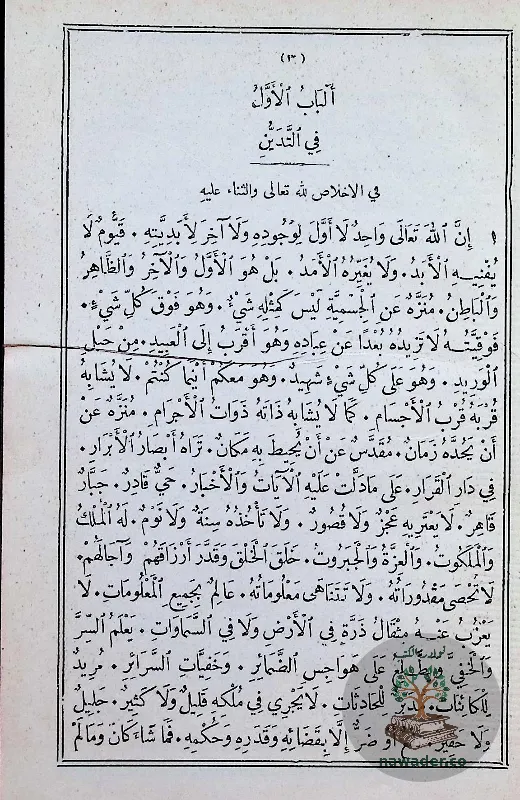 (١٣)
أَلْبَابُ ٱلْأَوَّلُ
فِي ٱلتَّدَيُّنِ
في الاخلاص لله تعالى والثناء عليهِ
١ إِنَّ ٱللهَ تَعَالَى وَاحِدٌ لَا أَوَّلَ لِوُجُودِهِ وَلَا آخِرَ لِأَبَدِيَّتِهِ . قَيُّومٌ لَا
يُفْنِيهِ ٱلْأَبَدُ . وَلَا يُغَيِّرُهُ ٱلْأَمَدُ . بَلْ هُوَ ٱلْأَوَّلُ وَٱلْآخِرُ وَٱلظَّاهِرُ
وَٱلْبَاطِنُ . مُنَزَّهٌ عَنِ ٱلْجِسْمِيَّةِ لَيْسَ كَمِثْلِهِ شَيْءٌ . وَهُوَ فَوْقَ كُلِّ شَيْءٍ .
فَوْقِيَّتُهُ لَا تَزِيدُهُ بُعْدًا عَنْ عِبَادِهِ وَهُوَ أَقْرَبُ إِلَى ٱلْعَبِيدِ . مِنْ حَبْلِ
ٱلْوَرِيدِ . وَهُوَ عَلَى كُلِّ شَيْءٍ شَهِيدٌ . وَهُوَ مَعَكُمْ أَيْنَمَا كُنْتُمْ . لَا يُشَابِهُ
قُرْبُهُ قُرْبَ ٱلْأَجْسَامِ . كَمَا لَا يُشَابِهُ ذَاتُهُ ذَوَاتُ ٱلْأَجْرَامِ . مُنَزَّهٌ عَنْ
أَنْ يَحُدَّهُ زَمَانٌ . مُقَدَّسٌ عَنْ أَنْ يُحِيطَ بِهِ مَكَانٌ . تَرَاهُ أَبْصَارُ ٱلْأَبْرَارِ .
فِي دَارِ ٱلْقَرَارِ . عَلَى مَا دَلَّتْ عَلَيْهِ ٱلْآيَاتُ وَٱلْأَخْبَارُ . حَيٌّ قَادِرٌ . جَبَّارٌ
قَاهِرٌ . لَا يَعْتَرِيهِ عَجْزٌ وَلَا قُصُورٌ . وَلَا تَأْخُذُهُ سِنَةٌ وَلَا نَوْمٌ . لَهُ ٱلْمُلْكُ
وَٱلْمَلَكُوتُ . وَٱلْعِزَّةُ وَٱلْجَبَرُوتُ . خَلَقَ ٱلْخَلْقَ وَقَدَّرَ أَرْزَاقَهُمْ وَآجَالَهُمْ .
لَا تُحْصَى مَقْدُورَاتُهُ . وَلَا تَتَنَاهَى مَعْلُومَاتُهُ . عَالِمٌ بِجَمِيعِ ٱلْمَعْلُومَاتِ . لَا
يَعْزُبُ عَنْهُ مِثْقَالُ ذَرَّةٍ فِي ٱلْأَرْضِ وَلَا فِي ٱلسَّمَاوَاتِ . يَعْلَمُ ٱلسِّرَّ
وَٱلْخَفِيَّ . وَيَطَّلِعُ عَلَى هَوَاجِسِ ٱلضَّمَائِرِ . وَخَفِيَّاتِ ٱلسَّرَائِرِ . مُرِيدٌ
لِلْكَائِنَاتِ . مُدَبِّرٌ لِلْحَادِثَاتِ . لَا يَجْرِي فِي مُلْكِهِ قَلِيلٌ وَلَا كَثِيرٌ . جَلِيلٌ
وَلَا حَقِيرٌ . أَوْ ضَرٌّ إِلَّا بِقَضَائِهِ وَقَدَرِهِ وَحُكْمِهِ . فَمَا شَاءَ كَانَ وَمَا لَمْ
nawader.co